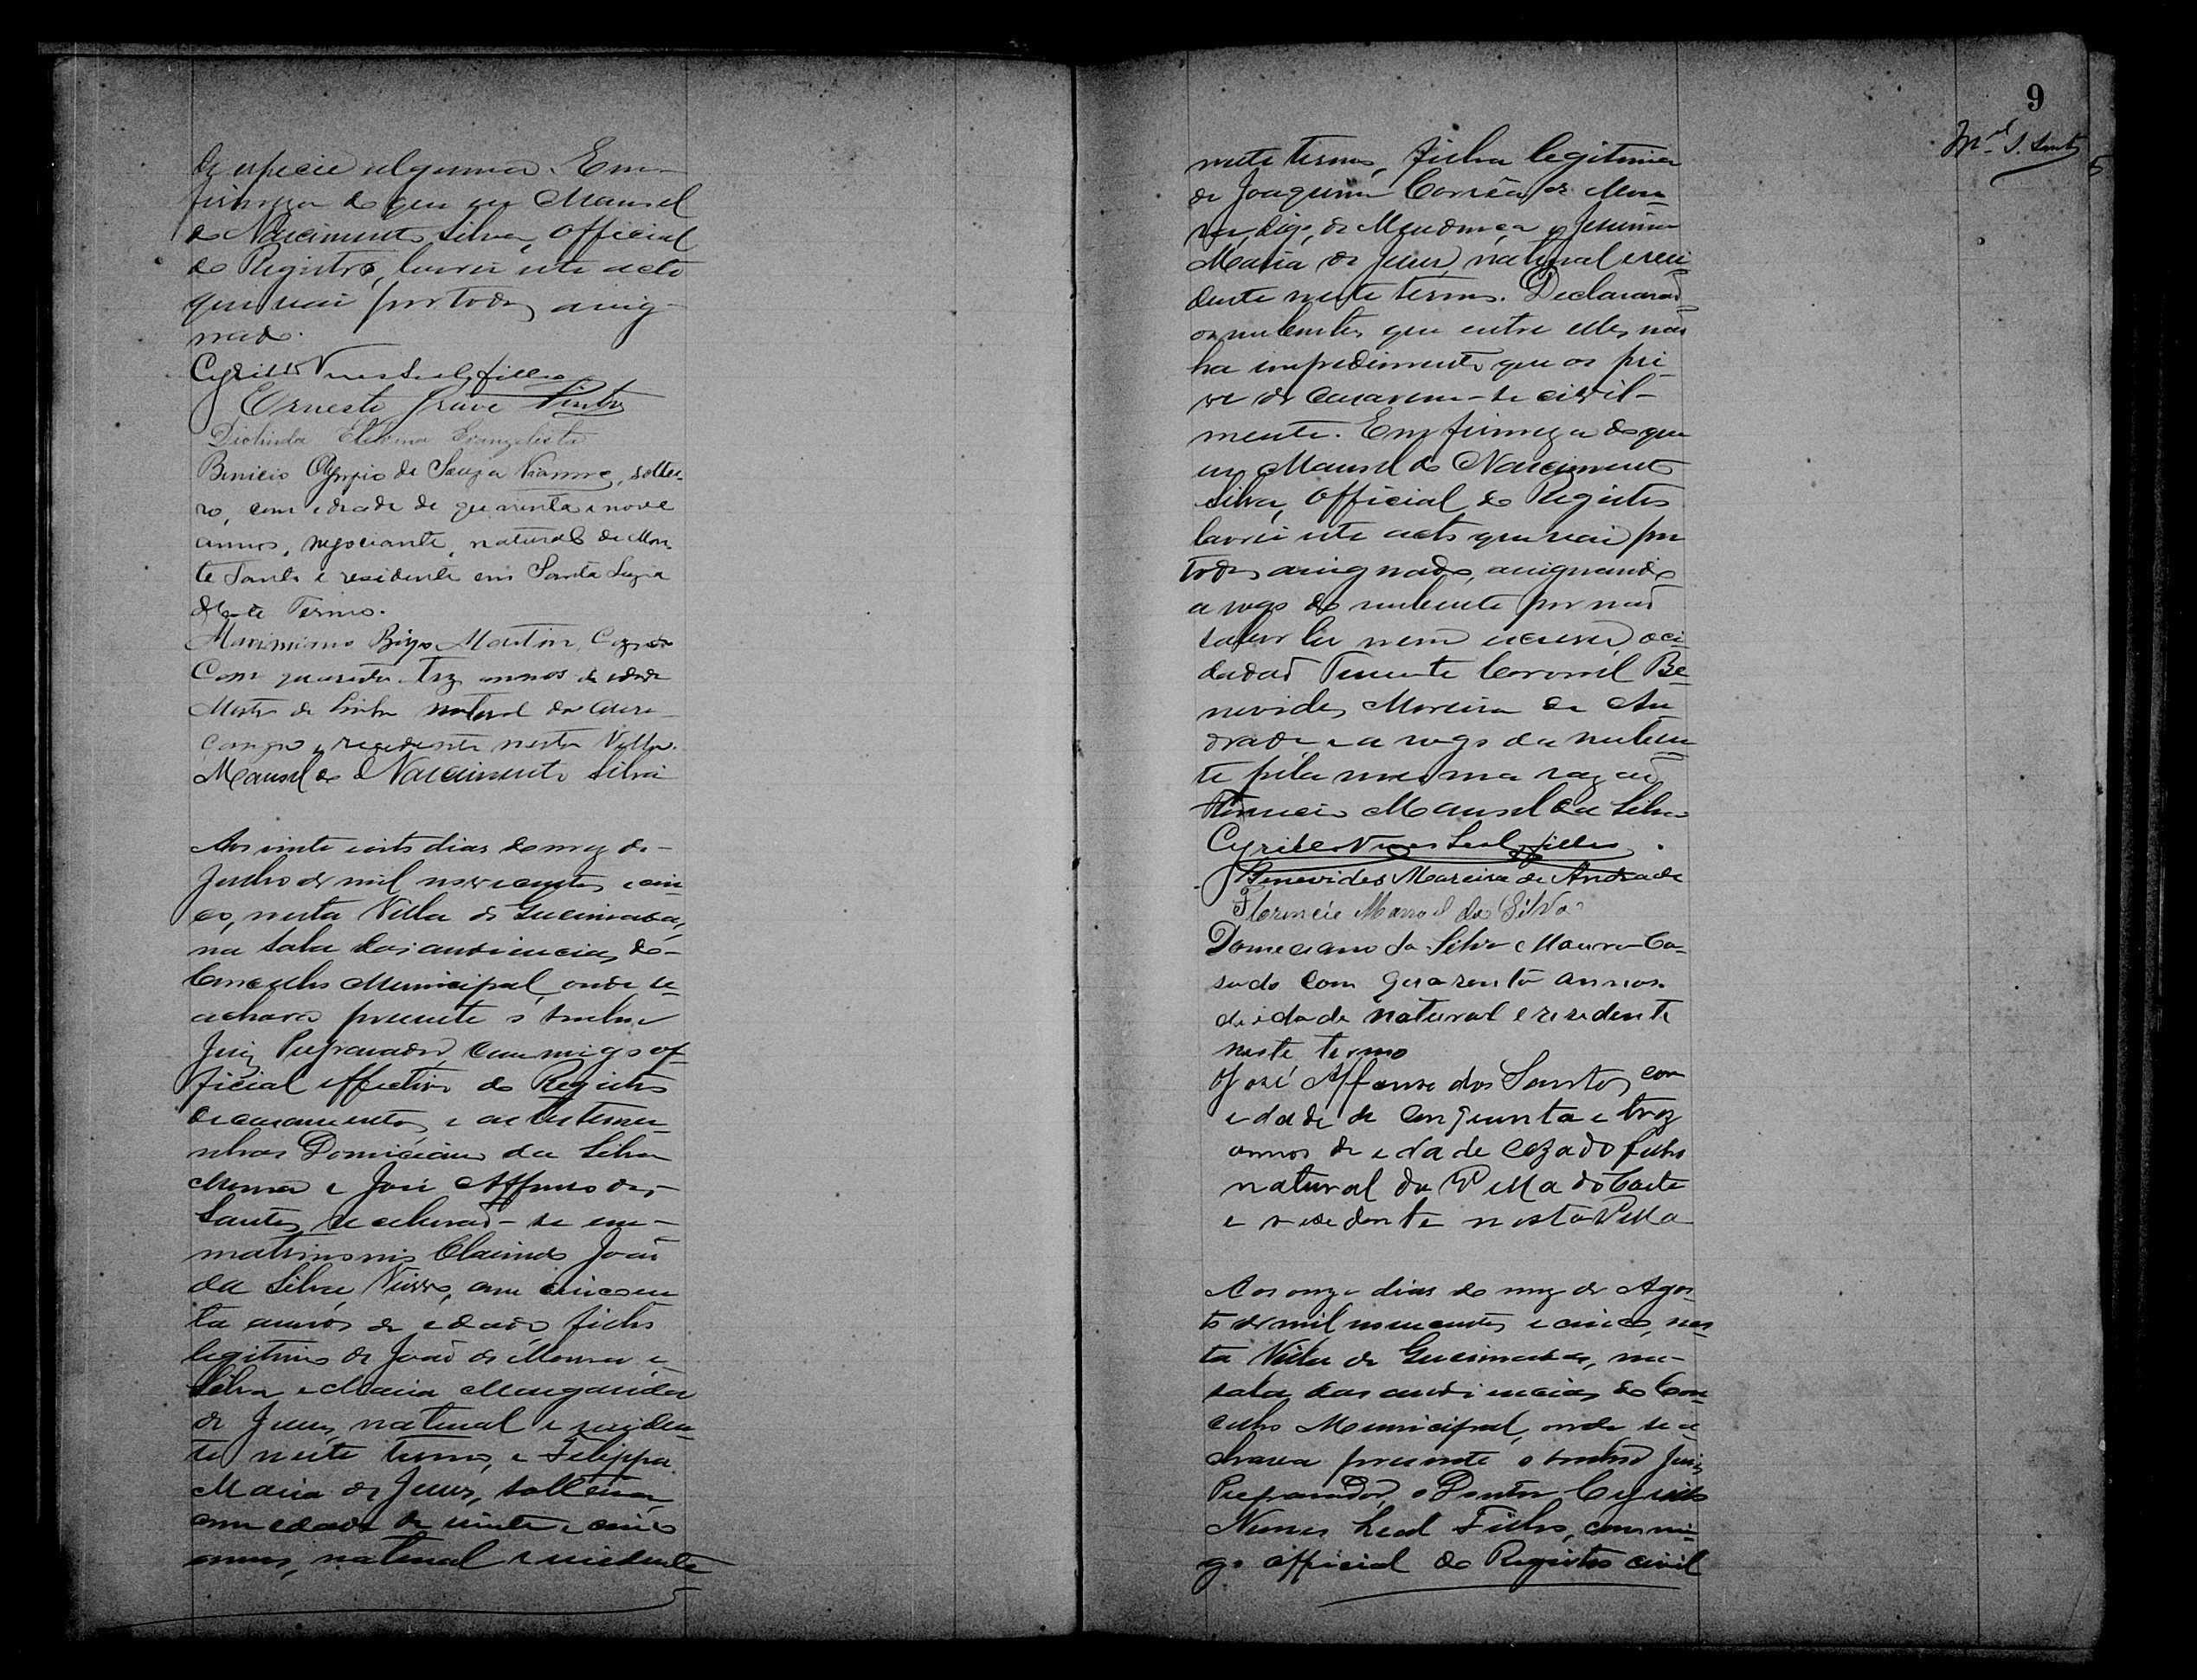 de especie alguma. Em
firmeza do que eu Manoel
do Nascimento Silva, Official
do Registro, lavrei este acto
que vai por todos assig-
nado.
Cyrillo Nunes Leal filho
Ernesto Pinto
Evangelista
Benicio Olympio de Souza Vianna, soltei-
ro, com edade de quarenta e nove
annos, negociante, natural de Mon
te Santo e residente em Santa Luzia
deste Termo.
Martins, Cazado
Com quarenta trez annos de edade
natural
residente nesta Villa.
Manoel do Nascimento Silva
Aos vinte oito dias do mez de
Julho de mil novecentos e cin
co, nesta Villa de Queimadas,
na sala das audiencias do
Conselho Municipal, onde se
achava presente o
Juiz Preparador, commigo of
ficial effectivo do Registro
de casamentos, e as testemu
nhas Domiciano da Silva
Moura e José Affonso dos
Santos, receberaõ-se em
matrimonio Claindo João
da Silva, Viuvo, com cincoen
ta annos de edade, filho
legitimo de Joaõ de Moura e
Silva e Maria Margarida
de Jesus, natural e residen
te neste termo, e Filippa
Maria de Jesus, solteira,
com edade de vinte e cinco
annos, natural e residente
neste termo, filha legitima
de Joaquim Corrêa de Mou
ra, digo, de Mendonça e Jesuina
Maria de Jesus, natural e resi
dente neste termo. Declararaõ
os nubentes que entre elles naõ
ha impedimento que os pri
ve de casarem-se civil-
mente. Em firmeza do que
eu Manoel do Nascimento
Silva, Official do Registro
lavrei este acto que vai por
todos assignado, assignando
a rogo do nubente por naõ
saber ler nem escrever, o ci
dadaõ Tenente Coronel Be
nevides Moreira de An
drade, e a rogo da nuben
te pela mesma razaõ
Florencio Manoel da Silva
Cyrillo Nunes Leal filho.
Benevides Moreira de Andrade
Florencio Manoel da Silva
Domeciano da Silva Moura Ca-
sado com quarenta annos
de idade natural e residente
neste termo
José Affonso dos Santos com
edade de conquenta e trez
annos de edade cazado filho
natural da Villa do Conde
e residente nesta Villa
Aos onze dias do mez de Agos
to de mil novecentos e cinco, nes
ta Villa de Queimadas, na
sala das audiencias do Con
celho Municipal, onde se a
chava presente o Juiz
Preparador, o Doutor Cyrillo
Nunes Leal Filho, commi
go official do Registro civil
9
Mel S. Santos
5